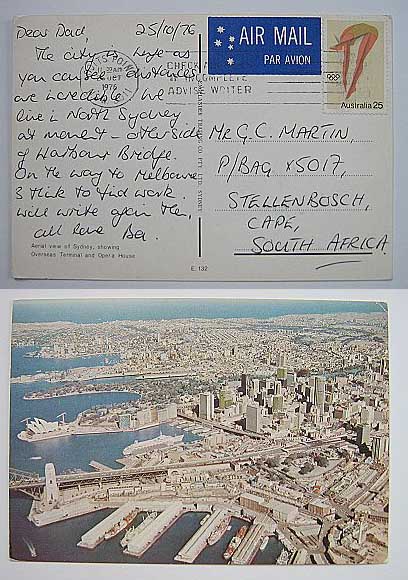 Dear Dad, 25/10/76
The city is huge as
you can see. Distances
are incredible. We
live in North Sydney
at moment - other side
of Harbour Bridge.
On the way to Melbourne
I think to find work.
Will write again then,
all love
Aerial view of Sydney, showing
Overseas Terminal and Opera House
E. 132
POTTS POINT
1976
CHECK
IF INCOMPLETE
ADVISE WRITER
AIR MAIL
PAR AVION
Australia 25
Mr G.C. MARTIN,
P/BAG X5017,
STELLENBOSCH,
CAPE,
SOUTH AFRICA